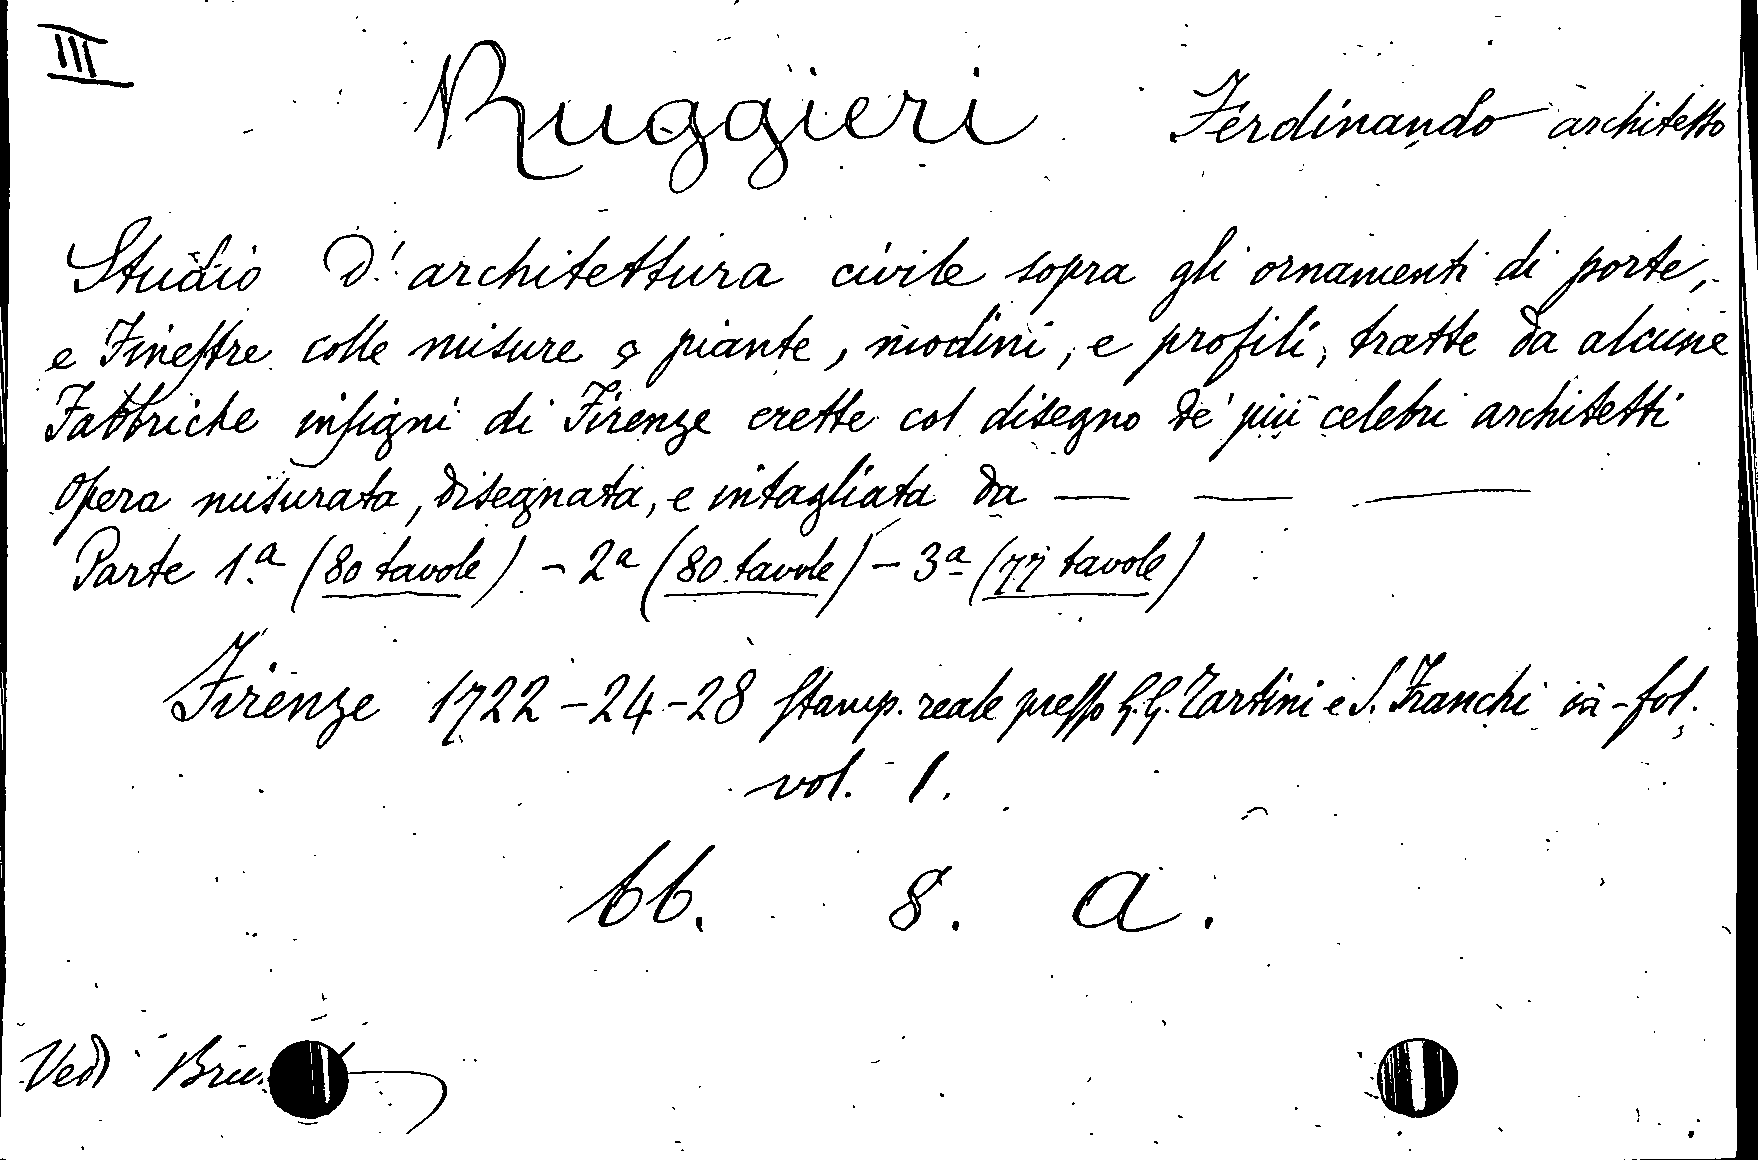 III
Ruggieri Ferdinando architetto
Studio d'architettura civile sopra gli ornamenti di porte,
e Finestre colle misure, piante, modini, e profili, tratte da alcune
Fabbriche insigni di Firenze erette col disegno de' più celebri architetti
Opera misurata, disegnata, e intagliata da — — —
Parte 1.a (80 tavole) - 2a (80 tavole) - 3a (77 tavole)
Firenze 1722-24-28 Stamp. reale presso G.G. Tartini e S. Franchi in-fol.
vol. 1.
66. 8. A.
Vedi